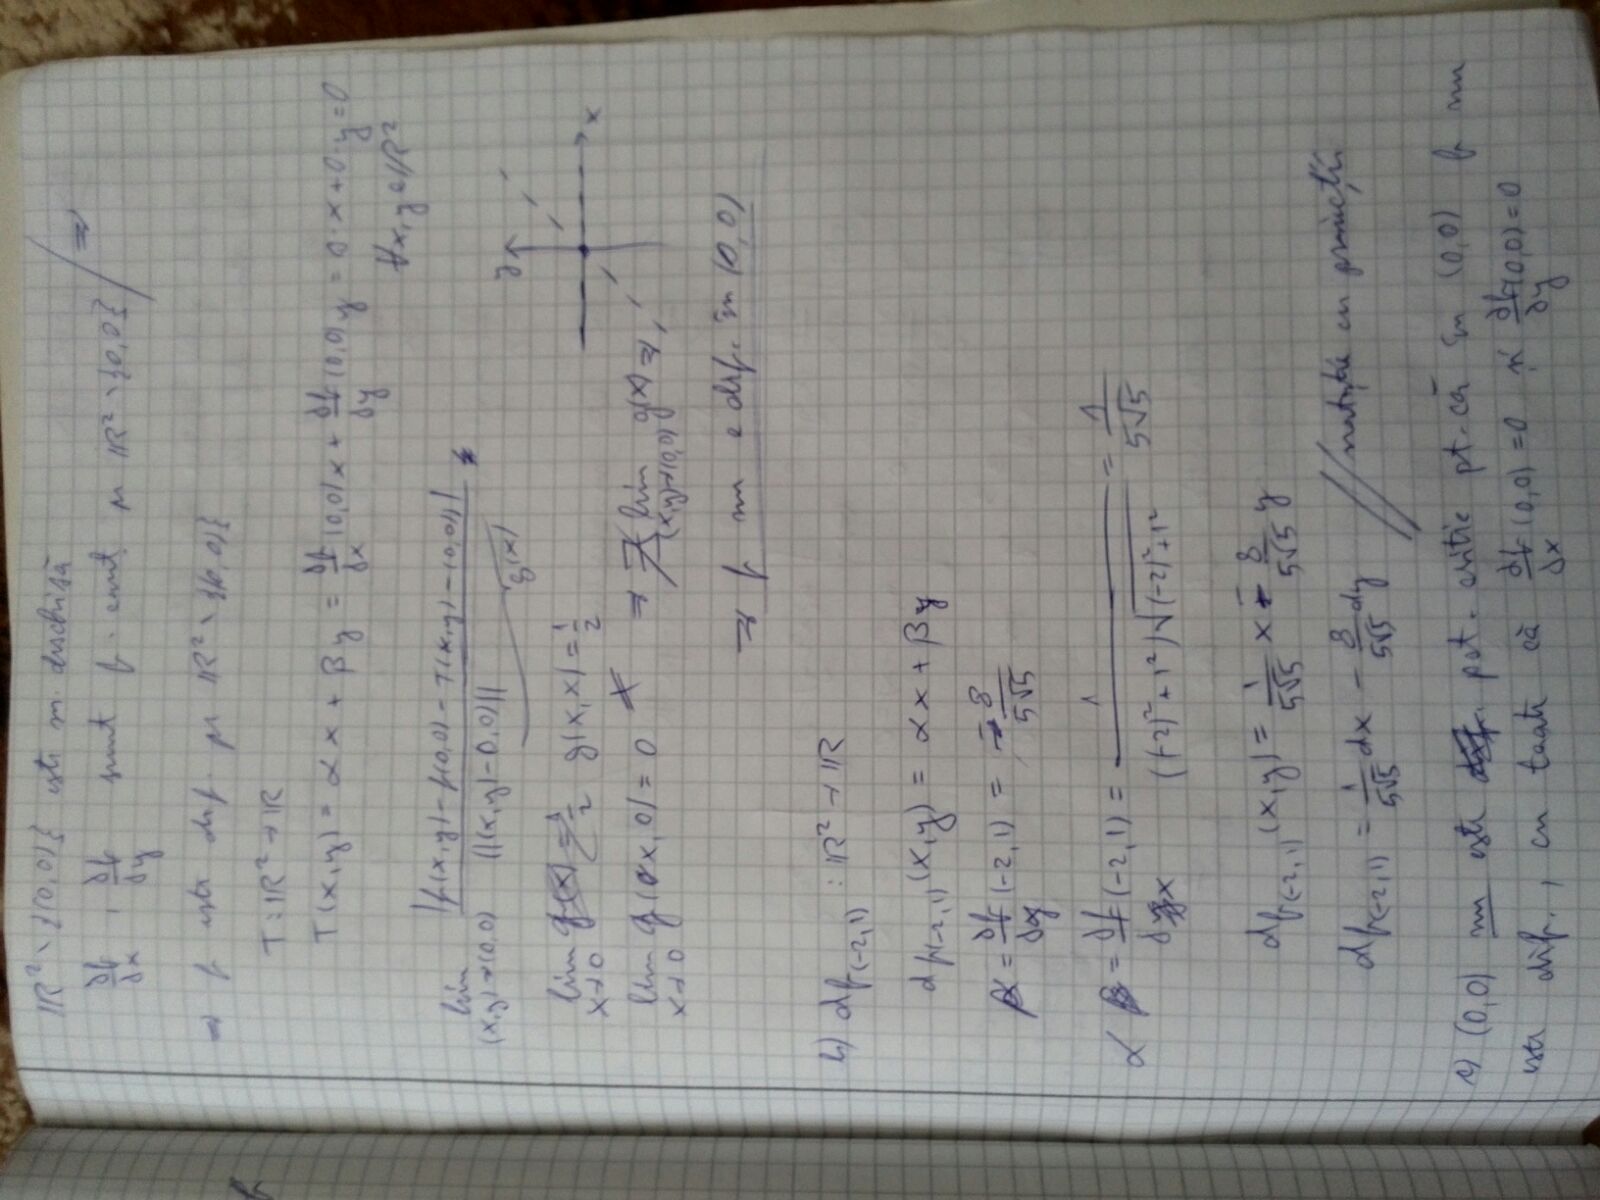 ℝ² \ {(0,0)} este m. deschisă
∂f/∂x , ∂f/∂y sunt f. cont. pe ℝ² \ {0,0} / ⇒
⇒ f este dif. pe ℝ² \ {(0,0)}
T : ℝ² → ℝ
T(x,y) = αx + βy = ∂f/∂x (0,0)x + ∂f/∂y (0,0)y = 0·x + 0·y = 0
∀x,y∈ℝ²
lim (x,y)→(0,0) |f(x,y) - f(0,0) - T((x,y) - (0,0))| / ||(x,y) - 0,0)||
g(x)
y
x
lim x→0 g(x,x) = 1/2
lim x→0 g(x,0) = 0 ⇒ ∄ lim (x,y)→(0,0) g(x) ⇒
⇒ f nu e dif. în (0,0)
b) df(-2,1) : ℝ² → ℝ
df(-2,1) (x,y) = αx + βy
β = ∂f/∂y (-2,1) = -8/5√5
α = ∂f/∂x (-2,1) = 1/((-2)²+1²)√((-2)²+1²) = 1/5√5
df(-2,1) (x,y) = 1/5√5 x - 8/5√5 y
df(-2,1) = 1/5√5 dx - 8/5√5 dy // notație cu proiecții
c) (0,0) nu este pct. critic pt. că în (0,0) f nu
este dif., cu toate că ∂f/∂x (0,0) = 0 și ∂f/∂y (0,0) = 0